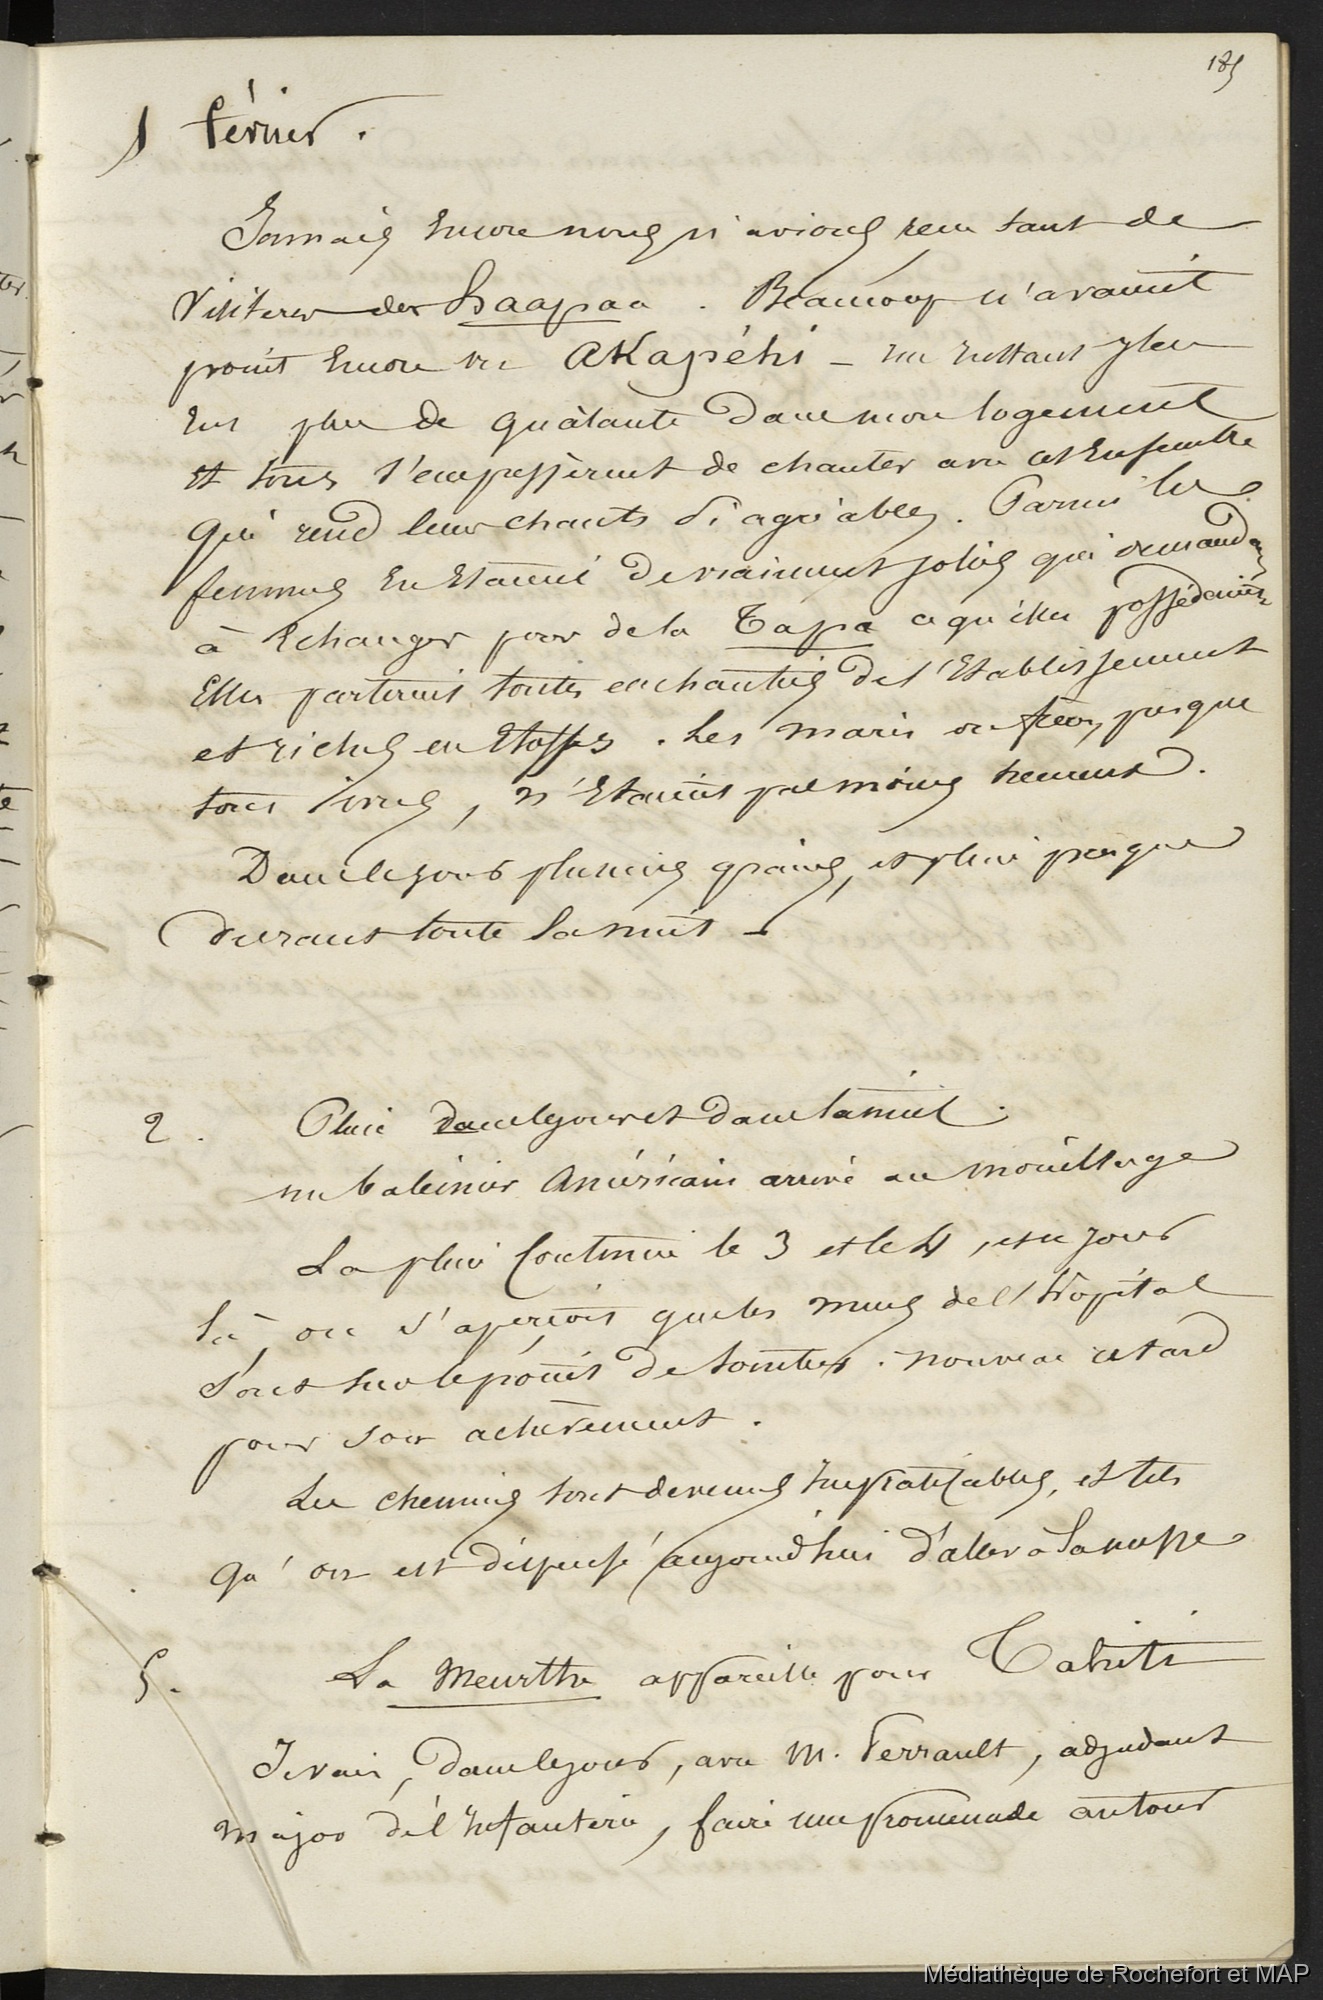 185
1 février.
Jamais encore nous n'avions reçu tant de
visiteurs des haapaa. Beaucoup n'avaient
point encore vu Akapéhi – un instant j'en
eus plus de quarante dans mon logement
et tous s'empressèrent de chanter avec cet ensemble
qui rend leurs chants si agréables. Parmi les
femmes en étaient de vraiment jolies qui demandaient
à échanger pour de la Tapa ce qu'elles possédaient
Elles partirent toutes enchantées de l'Etablissement
et riches en étoffes. Les maris ou frères, presque
tous ivres, n'étaient pas moins heureux.
Dans le jour plusieurs grains, et pluie presque
durant toute la nuit –
2. Pluie dans le jour et dans la nuit.
un baleinier américain arrivé au mouillage
La pluie continue le 3 et le 4, et ce jour
là, on s'aperçoit que les murs de l'hôpital
sont sur le point de tomber. nouveau retard
pour son achèvement.
Les chemins sont devenus impraticables, et tels
qu'on est dispensé aujourd'hui d'aller à la messe
5. La Meurthe appareille pour Tahiti
Je vais, dans le jour, avec M. Perrault, adjudant
major de l'infanterie, faire une promenade autour
Médiathèque de Rochefort et MAP